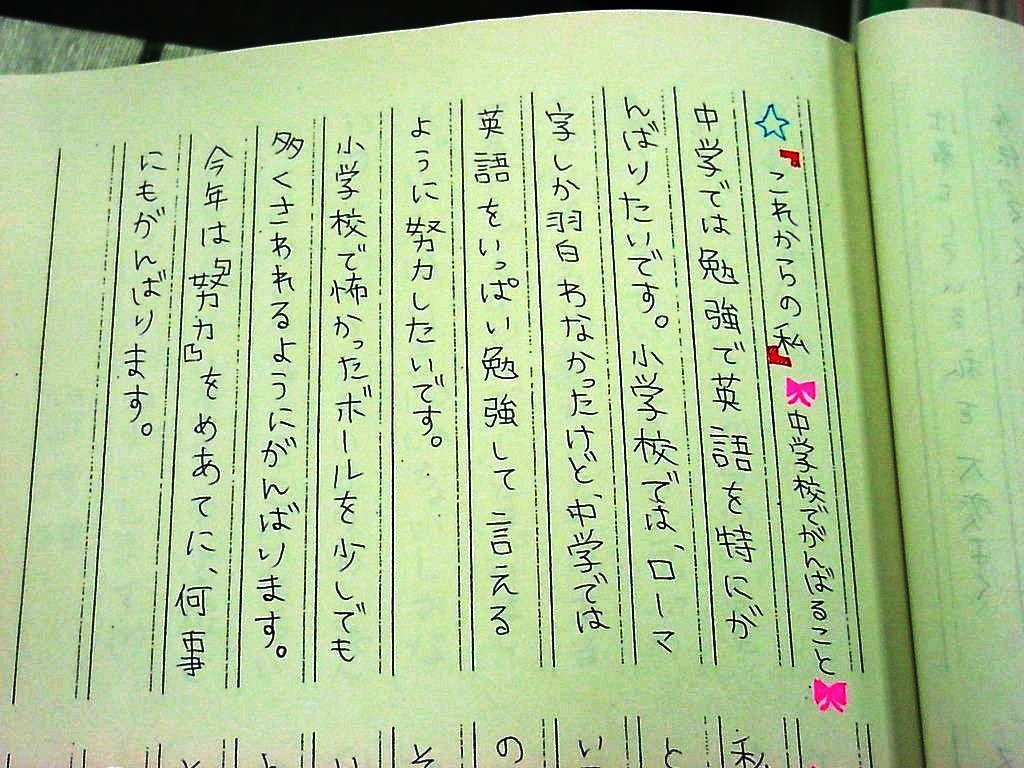 ☆『これからの私』中学校でがんばること
中学では勉強で英語を特にが
んばりたいです。小学校では、ローマ
字しか習わなかったけど、中学では
英語をいっぱい勉強して言える
ように努力したいです。
小学校で怖かったボールを少しでも
多くさわれるようにがんばります。
今年は「努力」をめあてに、何事
にもがんばります。
私
と
い
の
そ
い